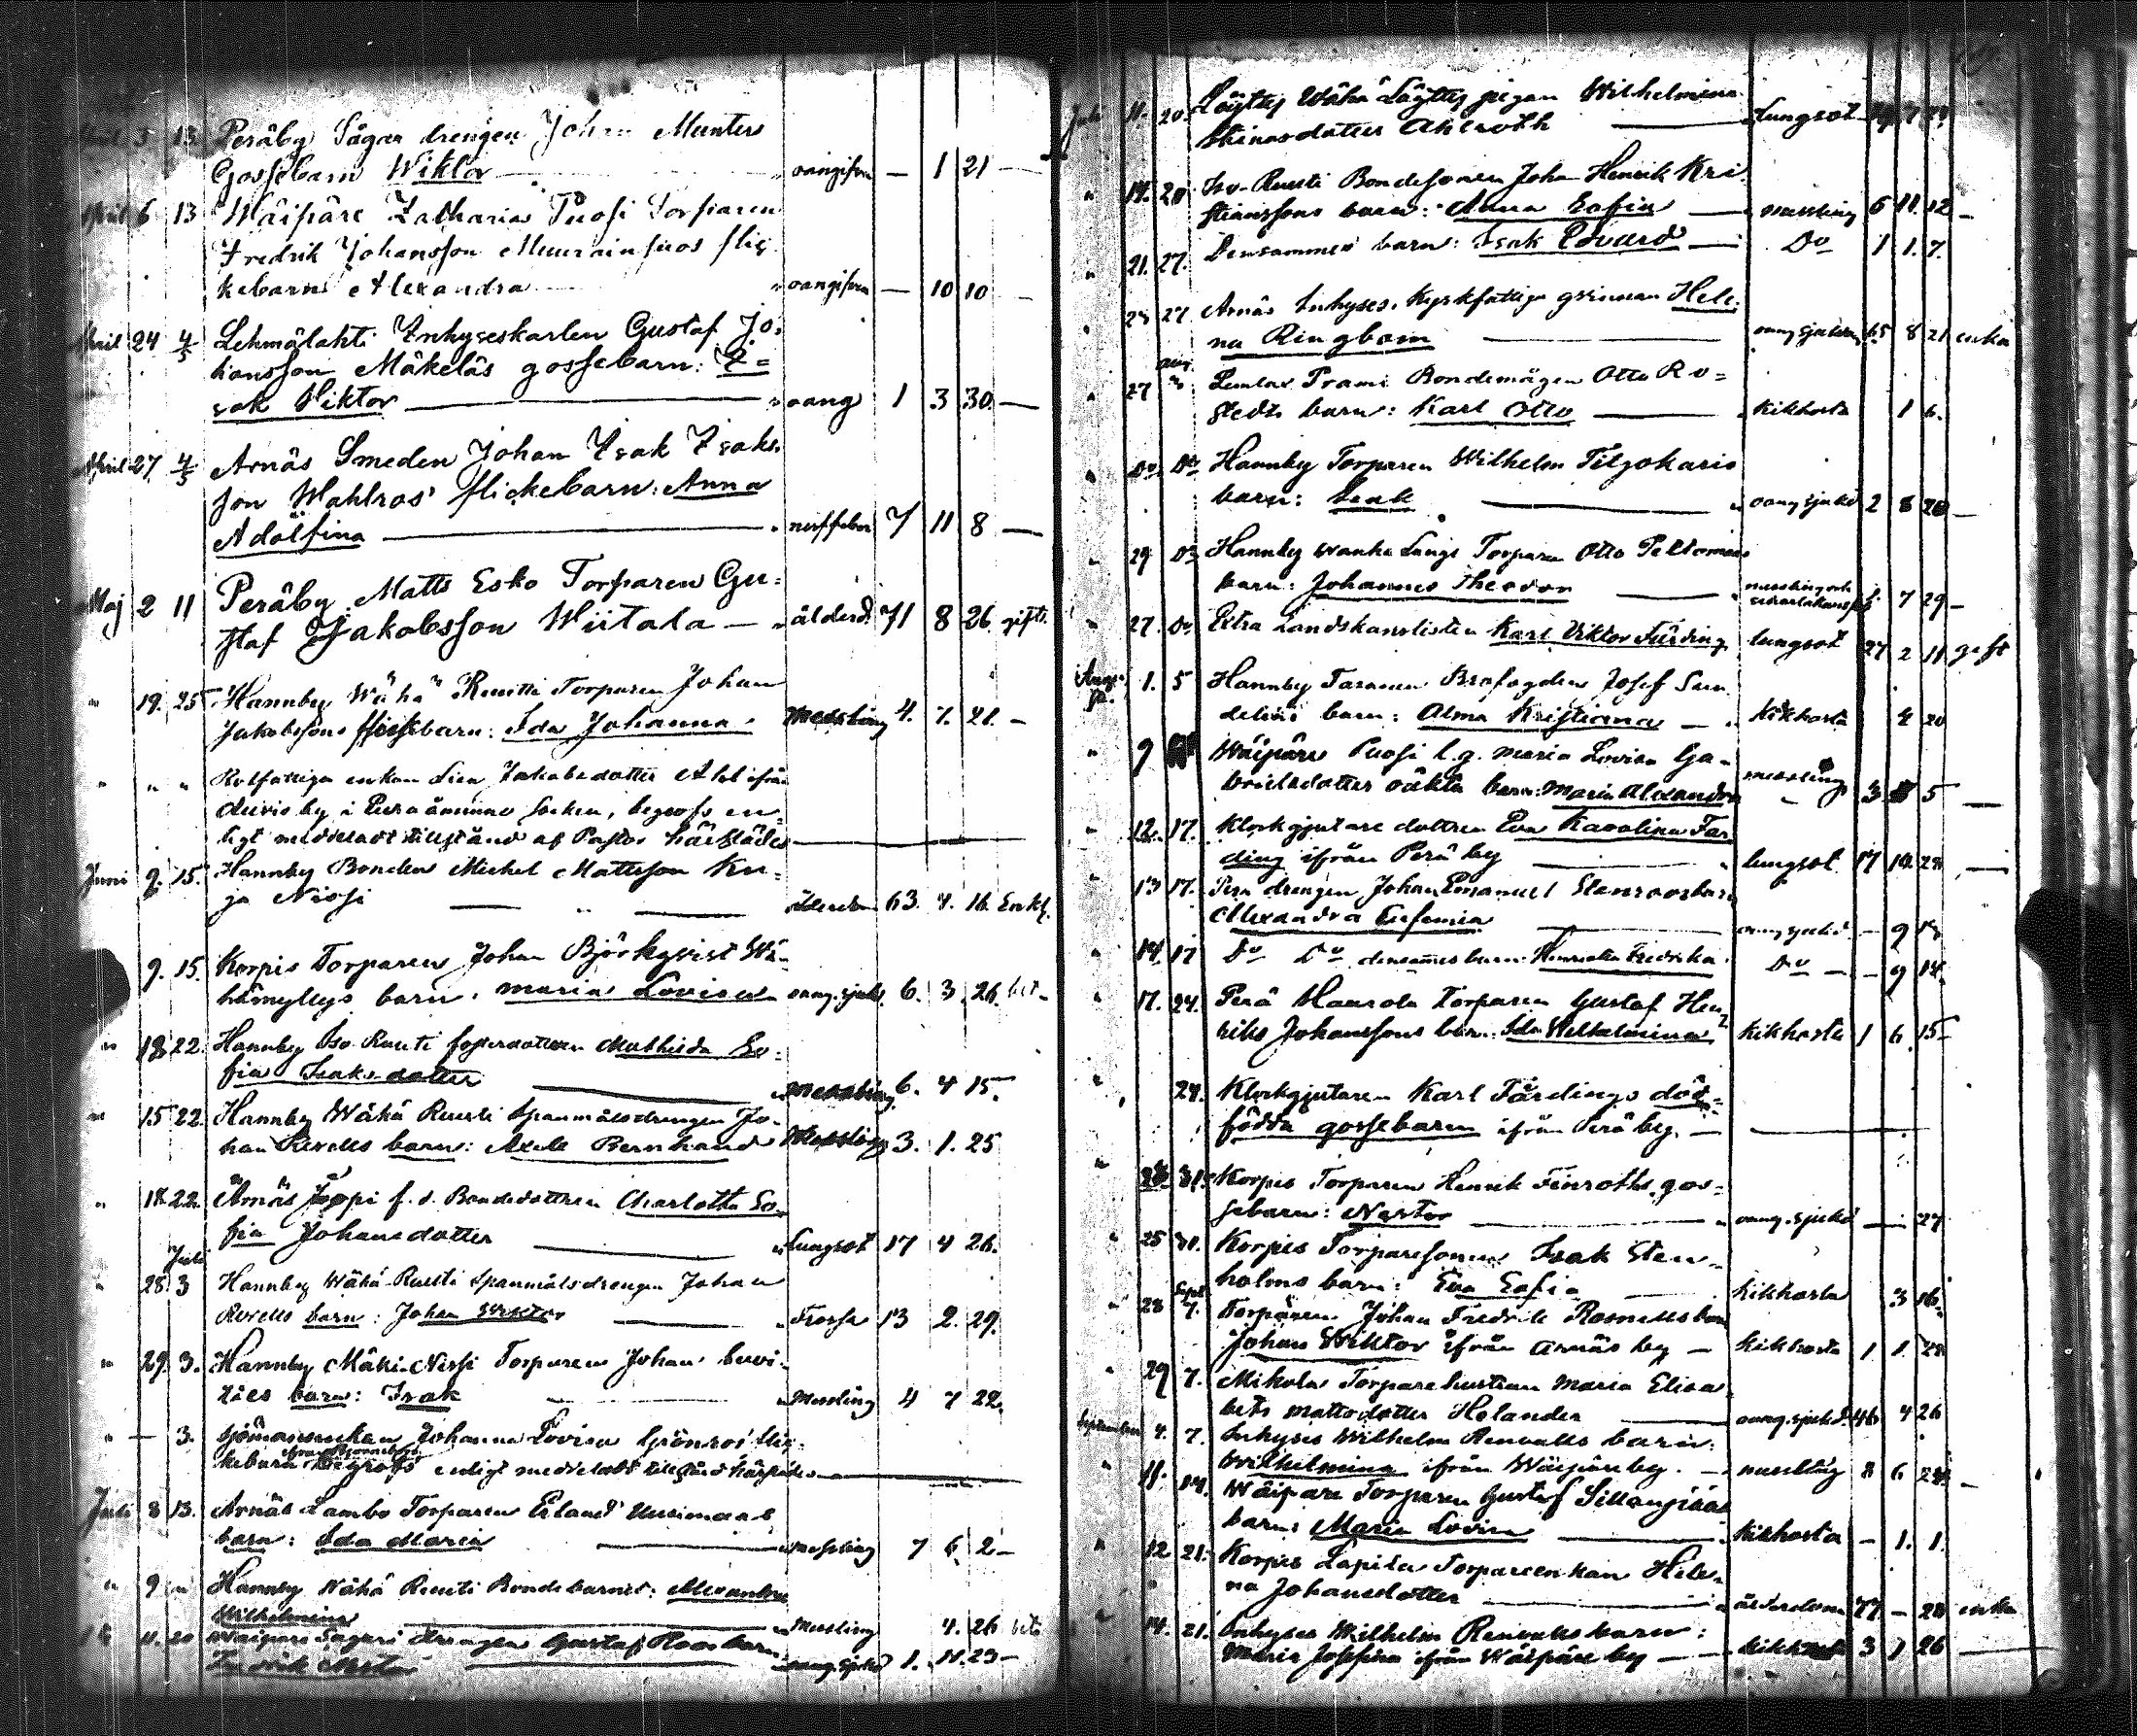 April 5 13 Peräby Sågar drengen Johan Munters
Gossebarn Wiktor — oangifven — 1 21 —
April 6 13 Wäipäre Zacharias Puosi Torparen
Fredrik Johansson flic-
kebarn Alexandra oangifven — 10 10 —
April 24 4/5 Lehmälahti Inhyseskarlen Gustaf Jo-
hansson Mäkeläs gossebarn: I=
sak Viktor — oang 1 3 30 —
April 27. 4/5 Arnäs Smeden Johan Isak Isaks-
son Wahlros' flickebarn: Anna
Adolfina — 7 11 8 —
Maj 2 11 Peräby Matts Esko Torparen Gu=
staf Jakobsson Wiitala — ålderd. 71 8 26 gift.
" 19. 25 Hannby Wähä Ruusti Torparen Johan
Jakobssons barn: Ida Johanna. Messling 4. 7. 21. —
" " " Rotfattiga enkan Lisa Jakobsdotter ifrån
by i Eura åminne Socken, begrofs en-
ligt meddeladt tillstånd af Pastor härstädes —
Juni 9. 15. Hannby Bonden Michel Mattsson Ku-
ja Niossi — ålderdom 63. 4. 16. Enkl.
9. 15. Korpis Torparen Johan Björkqvist Wä-
hämyllys barn. Maria Lovisa oang. sjukd. 6. 3. 26.
" 18 22. Hannby Iso Ruusti fosterdottren Mathilda So-
fia Isaksdotter — Messling 6. 4 15.
" 15 22. Hannby Wähä Ruusti Spanmålsdrengen Jo-
han Rexells barn: Axel Bernhard Messling 3. 1. 25
" 18. 22. Arnäs Jöppi f. d. Bondedottren Charlotta So-
fia Johansdotter — Lungsot 17 4 26.
Juli
" 28. 3 Hannby Wähä-Ruusti Spanmålsdrengen Johan
Rexells barn: Johan Viktor — Frossa 13 2. 29.
" 29. 3. Hannby Mäki-Nissi Torparen Johan
barn: Isak — Messling 4 7 22.
" — 3. Sjömansenkan Johanna Lovisa Grönroos' flic-
kebarn begrofs enligt meddeladt tillstånd härstädes —
Juli 8 13. Arnäs Lambo Torparen Erland Uusimaas
barn: Ida Maria — messling 7 6. 2 —
" 9 " Hannby Wähä Ruusti Bondebarnet: Alexandra
Wilhelmina — Messling 4. 26
11. 20 Wäipäre Sagari drengen Gustaf Roos barn
Fredrik Nestor — oang. sjukd 1. 11. 23 —
Juli 11. 20. Löyttys Wähä Löyttys pigan Wilhelmina
Stinasdotter Ahlroth — Lungsot 7
" 14. 20 Iso-Ruusti Bondesonen Johan Henrik Kri-
stianssons barn: Anna Sofia — messling 5 11. 12 —
" 21. 27. Densammes barn: Isak Edvard — Do 1 1. 7.
" 23 27 Arnäs Inhyses. Kyrkfattiga qvinnan Hele-
na Ringbom — oang sjukdom 65 8 21 enka
aug.
27 3 Lemlax Prami Bondemågen Otto Ro=
stedts barn: Karl Otto — Kikhosta 1 6.
" Do Do Hannby Torparen Wilhelm Tiljokaris
barn: Isak — oang sjukd 2 8 20 —
" 29 Do Hannby Wanha Längi Torparen Otto Peltomaas
barn: Johannes Theodor — messling och 7 29 —
" 27. Do Eitra Landskanslisten Karl Viktor Färding lungsot 27 2 11 gift
Augusti. 1. 5 Hannby Taranen Brofogden Josef Sun
delins barn: Alma Kristiana — Kikhosta 4 20
" 9 Wäipäre Puosi l. g. Maria Lovisa Ga-
brielsdotter oäkta barn: Maria Alexandra messling 3 5 —
" 12. 17. Klockgjutare dottren Eva Karolina Fär
ding ifrån Peräby — lungsot 17 10 28 —
" 13 17. Perä drengen Johan Emanuel Stenroos barn
Alexandra Eufemia — oang sjukd — 9
" 14. 17 Do Do densammes barn Henrietta Fredrika Do — 9 14.
" 17. 24. Perä Haarola Torparen Gustaf Hen
riks Johanssons barn. Ida Wilhelmina Kikhosta 1 6 15
" 24. Klockgjutaren Karl Färdings död=
födda gossebarn ifrån Peräby. —
" Korpis Torparen Henrik Finroths gos=
sebarn: Nestor — oang. sjukd — 27
" 25 31. Korpis Torparesonen Isak Sten-
holms barn: Eva Sofia — Kikhosta 3 16.
Sept.
" 28 7. Torparen Johan Fredrik Rosnells barn
Johan Wiktor ifrån Arnäs by — Kikhosta 1 1. 28
" 29 7. Mikola Torparehustrun Maria Elisa
bets Mattsdotter Helander — oang. sjukd. 46 4 26
September 4. 7. Inhyses Wilhelm Renvalls barn:
Wilhelmina ifrån Wäipäreby. — messling 8 6 28 —
" 11. 14. Wäipäre Torparen Gustaf Sillanpääs
barn: Maria Lovisa — Kikhosta — 1. 1.
" 12 21. Korpis Lapila Torpareenkan Hele-
na Johansdotter — ålderdom 77 — 28 enka
" 14. 21. Inhyses Wilhelm Renvalls barn:
Maria Josefina ifrån Wäipäre by — Kikhosta 3 1 26 —